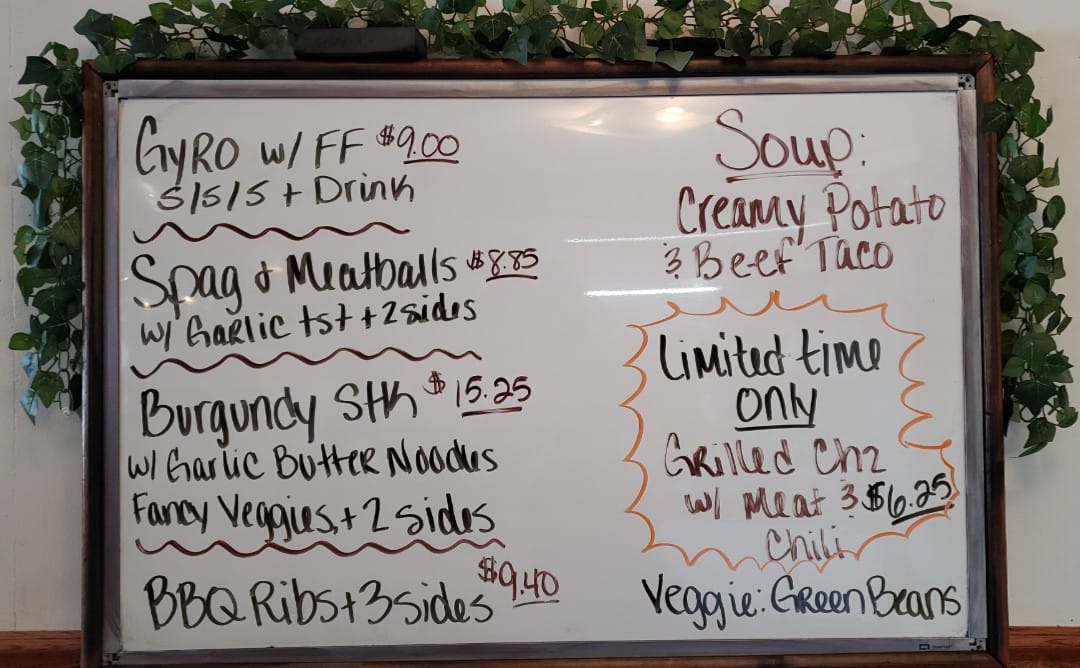 GyRO w/ FF $9.00
S/S/S + Drink
Spag & Meatballs $8.85
w/ Garlic tst + 2 sides
Burgundy Stk $15.25
w/ Garlic Butter Noodles
Fancy Veggies, + 2 sides
BBQ Ribs + 3 sides $9.40
Soup:
Creamy Potato
& Beef Taco
Limited time
ONLy
Grilled Chz
w/ Meat & $6.25
Chili
Veggie: Green Beans